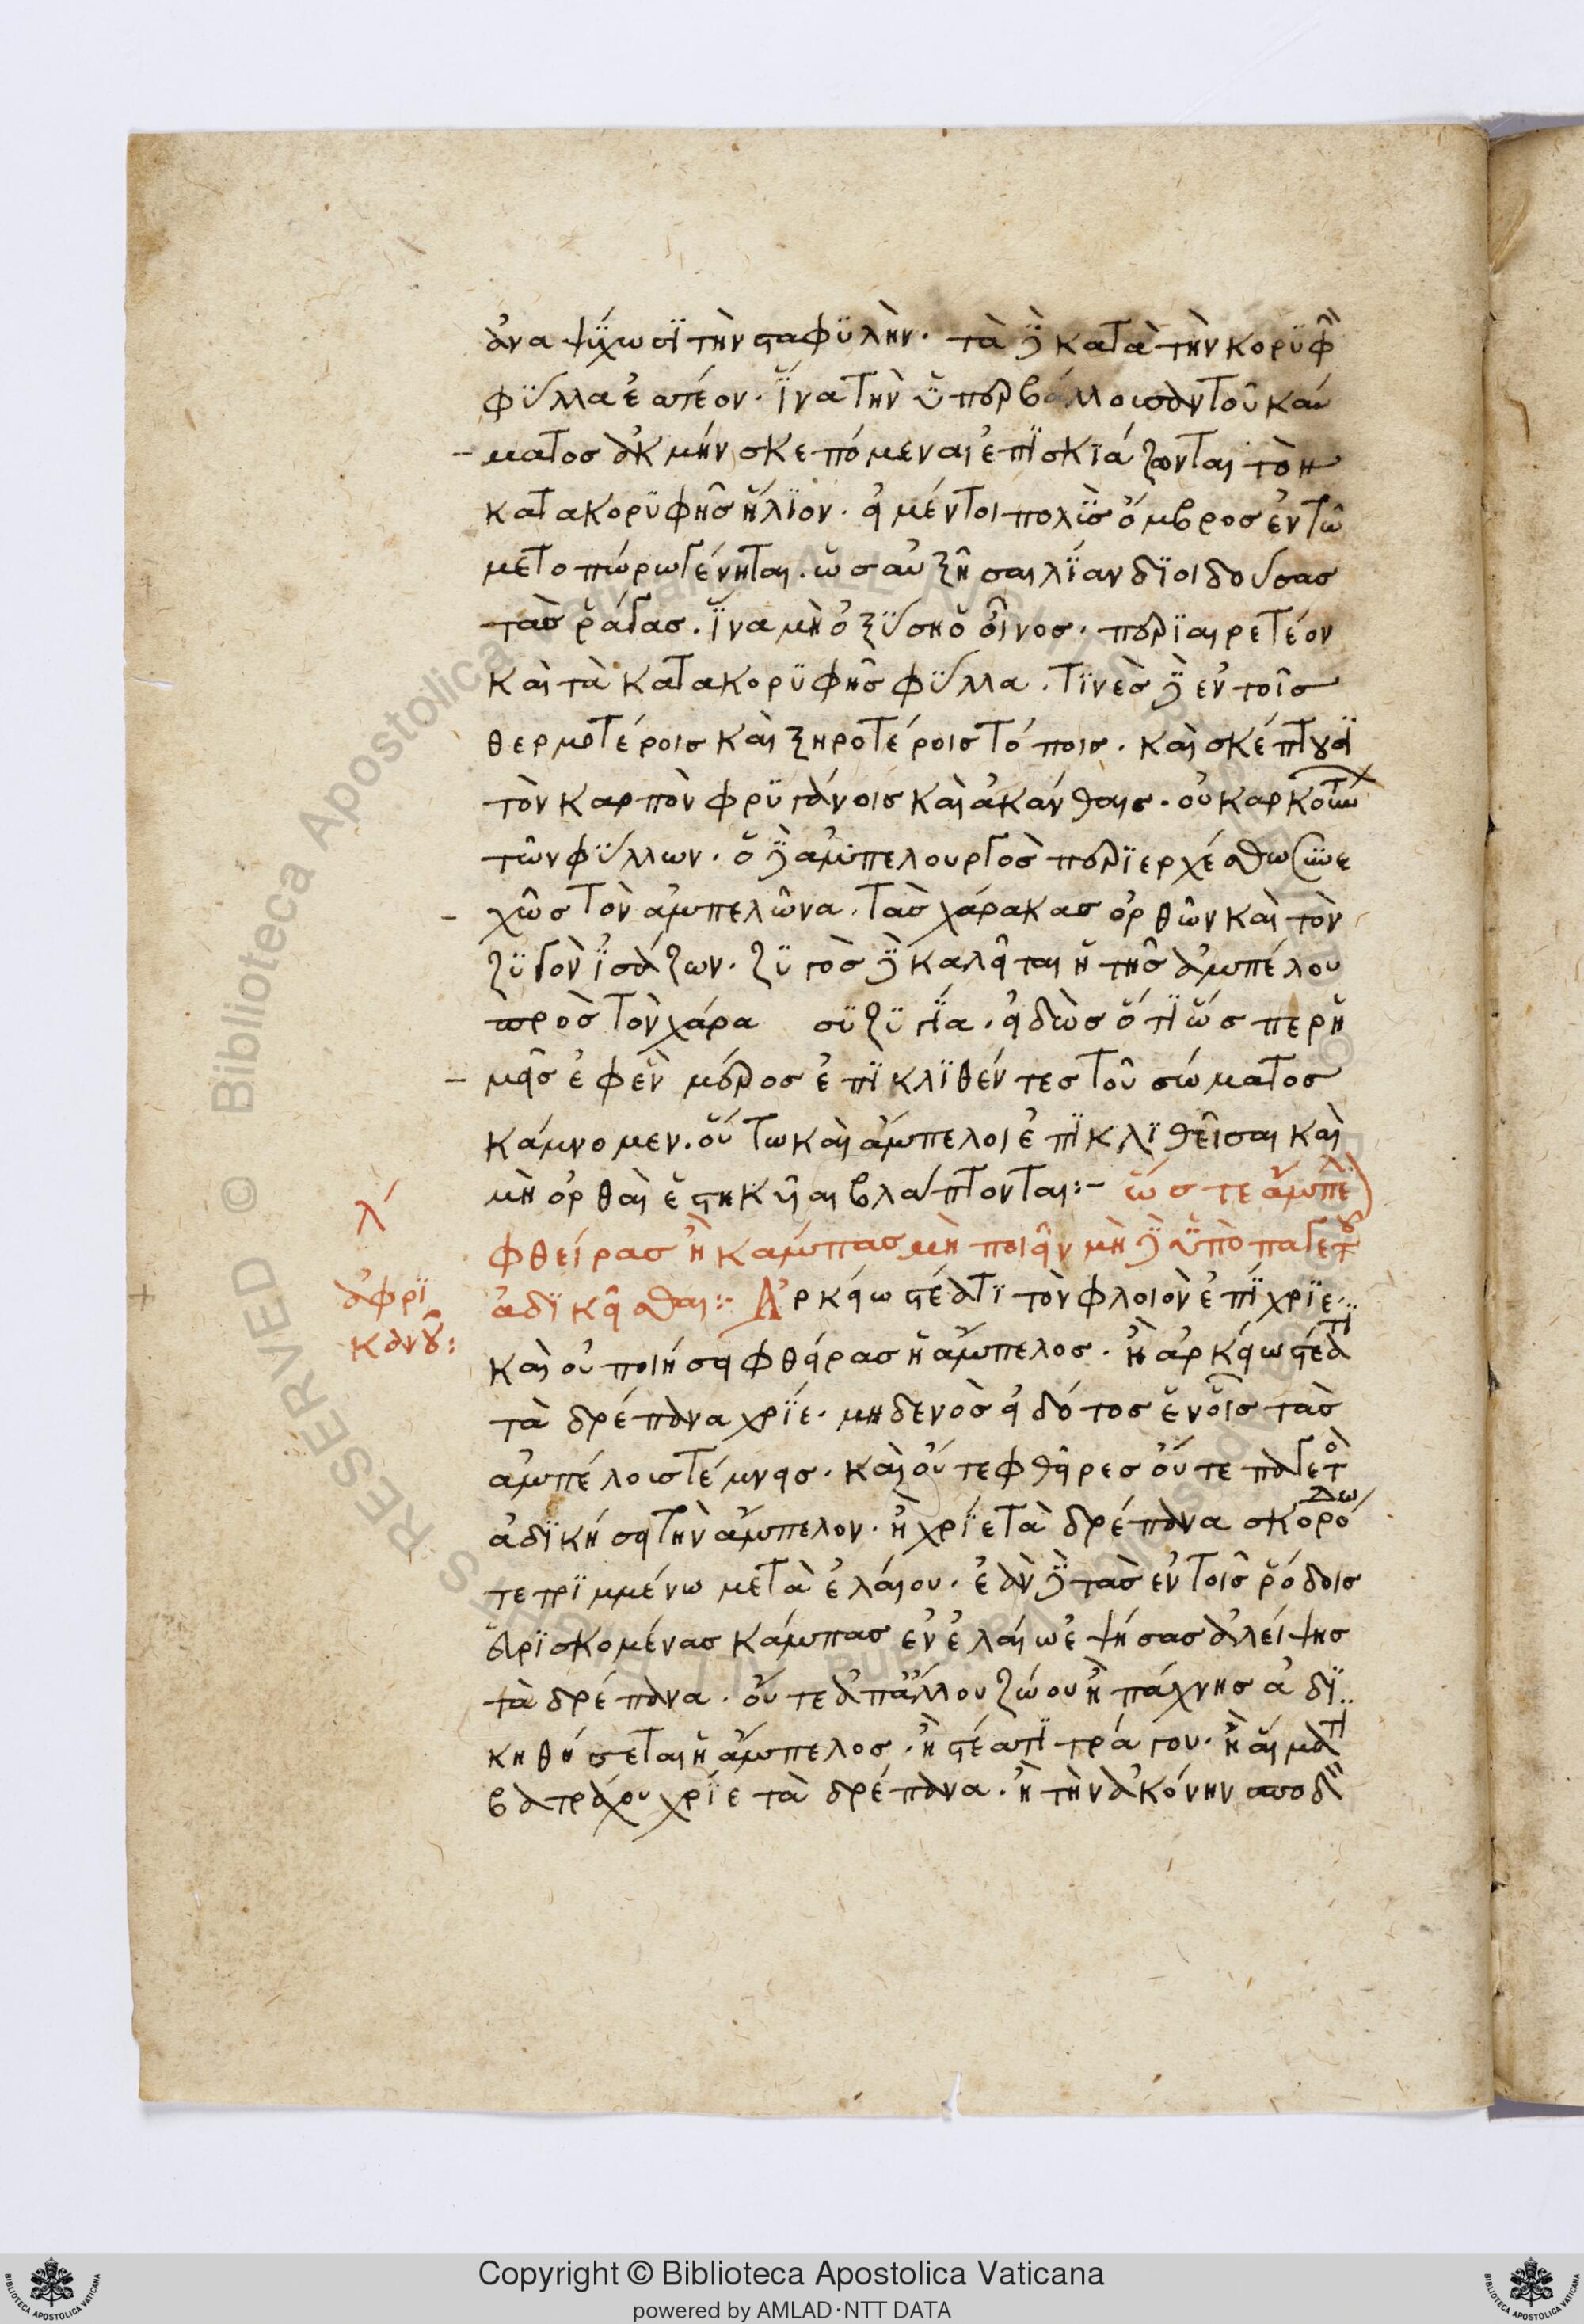 ἀναψύχωσι τὴν σταφυλὴν. τὰ δὲ κατὰ τὴν κορυφὴν
φύλλα ἐατέον. ἵνα τὴν ὑπερβάλλουσαν τοῦ καύ
ματος ἀκμὴν σκεπόμεναι ἐπισκιάζωνται τὸν
κατακορυφῆς ἥλιον. εἰ μέντοι πολὺς ὄμβρος ἐν τῶ
μετοπώρω γένηται. ὡς αὐξῆσαι λίαν διοιδούσας
τὰς ῥάγας. ἵνα μὴ ὀξύση ὁ οἶνος. περιαιρετέον
καὶ τὰ κατακορυφῆς φύλλα. τινὲς δὲ ἐν τοῖς
θερμοτέροις καὶ ξηροτέροις τόποις. καὶ σκέπτουσι
τὸν καρπὸν φρυγάνοις καὶ ἀκάνθαις. οὐκ ἀρκούντων
τῶν φύλλων. ὁ δὲ ἀμπελουργὸς περιερχέσθω συνε
χῶς τὸν ἀμπελῶνα. τὰς χάρακας ὀρθῶν καὶ τὸν
ζυγὸν ἰσάζων. ζυγὸς δὲ καλεῖται ἡ τῆς ἀμπέλου
πρὸς τὸν χάρα συζυγία. εἰδὼς ὅτι ὥσπερ ἡ
μεῖς ἐφ ἓν μέρος ἐπικλιθέντες τοῦ σώματος
κάμνομεν. οὕτω καὶ ἄμπελοι ἐπικλιθεῖσαι καὶ
μὴ ὀρθαὶ ἑστηκυῖαι βλάπτονται:- ὥστε ἄμπελον
λ΄
φθείρας ἢ κάμπας μὴ ποιεῖν μὴ δὲ ὑπὸ παγετοῦ
ἀφρι
κανοῦ:
ἀδικεῖσθαι:- Ἀρκείω στέατι τὸν φλοιὸν ἐπίχριε.
καὶ οὐ ποιήσει φθεῖρας ἡ ἄμπελος. ἢ ἀρκείω στέατι
τὰ δρέπανα χρίε. μηδενὸς εἰδότος ἐν οἷς τὰς
ἀμπέλους τέμνεις. καὶ οὔτε φθεῖρες οὔτε παγετὸς
ἀδικήσει τὴν ἄμπελον. ἢ χρίε τὰ δρέπανα σκορόδω
τετριμμένω μετὰ ἐλαίου. ἐὰν δὲ τὰς ἐν τοῖς ῥόδοις
εὑρισκομένας κάμπας ἐν ἐλαίω ἑψήσας ἀλείψης
τὰ δρέπανα. οὔτε ἀπ ἄλλου ζώου ἢ πάχνης ἀδι
κηθήσεται ἡ ἄμπελος. ἢ στέατι τράγου. ἢ αἵματι
βατράχου χρίε τὰ δρέπανα. ἢ τὴν ἀκόνην
Copyright © Biblioteca Apostolica Vaticana
powered by AMLAD·NTT DATA